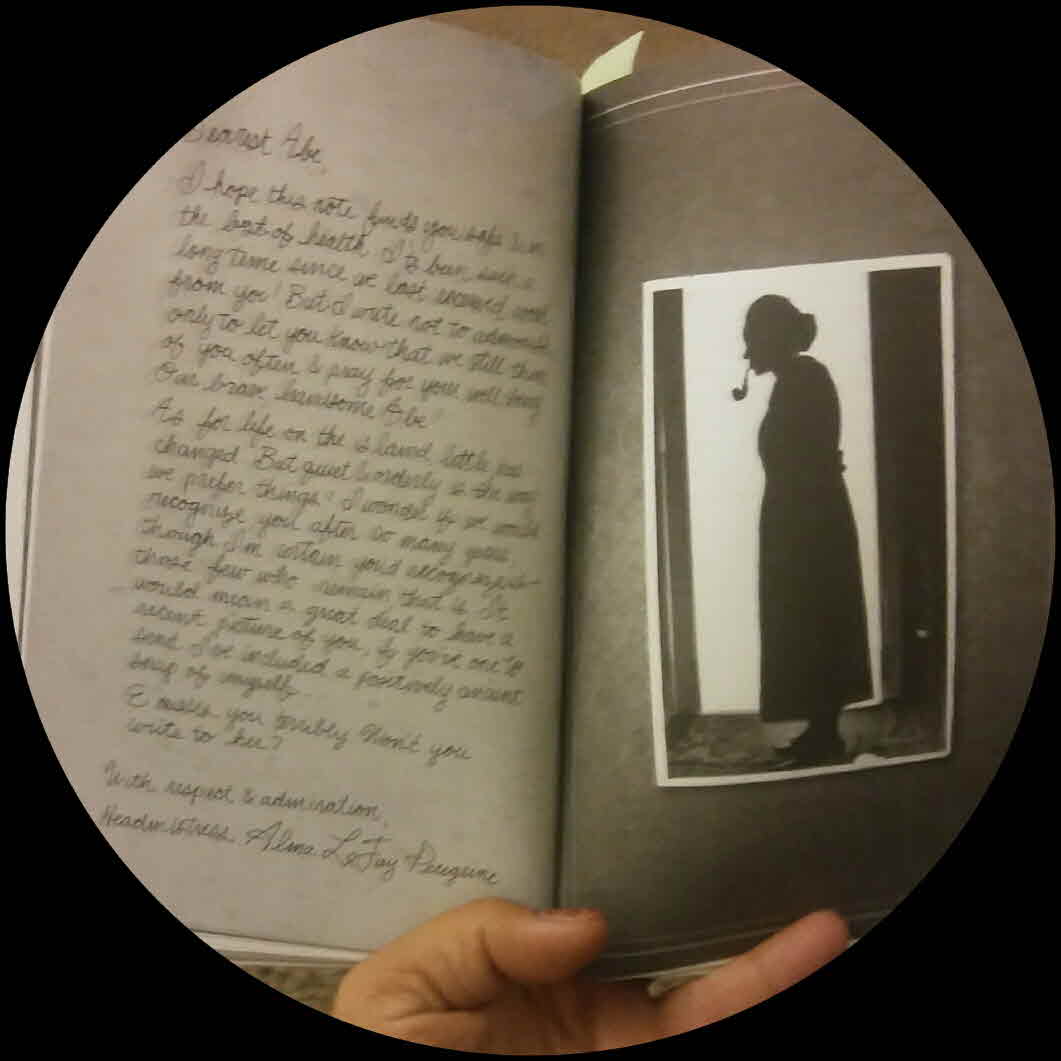 Dearest Abe,
I hope this note finds you safe & in
the best of health. It's been such a
long time since we last received word
from you! But I write not to admonish,
only to let you know that we still think
of you often & pray for your well-being.
Our brave, handsome Abe!
As for life on the island, little has
changed. But quiet & orderly is the way
we prefer things! I wonder if we would
recognize you after so many years,
though I'm certain you'd recognize us—
those few who remain, that is. It
would mean a great deal to have a
recent picture of you, if you've one to
send. I've included a positively ancient
snap of myself.
E misses you terribly. Won't you
write to her?
With respect & admiration,
Headmistress Alma LeFay Peregrine